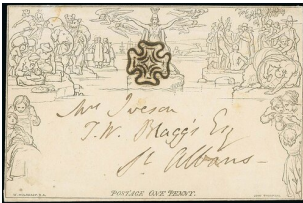 Mrs Iveson
T. W. Blagg's Esq
St. Albans
POSTAGE ONE PENNY.